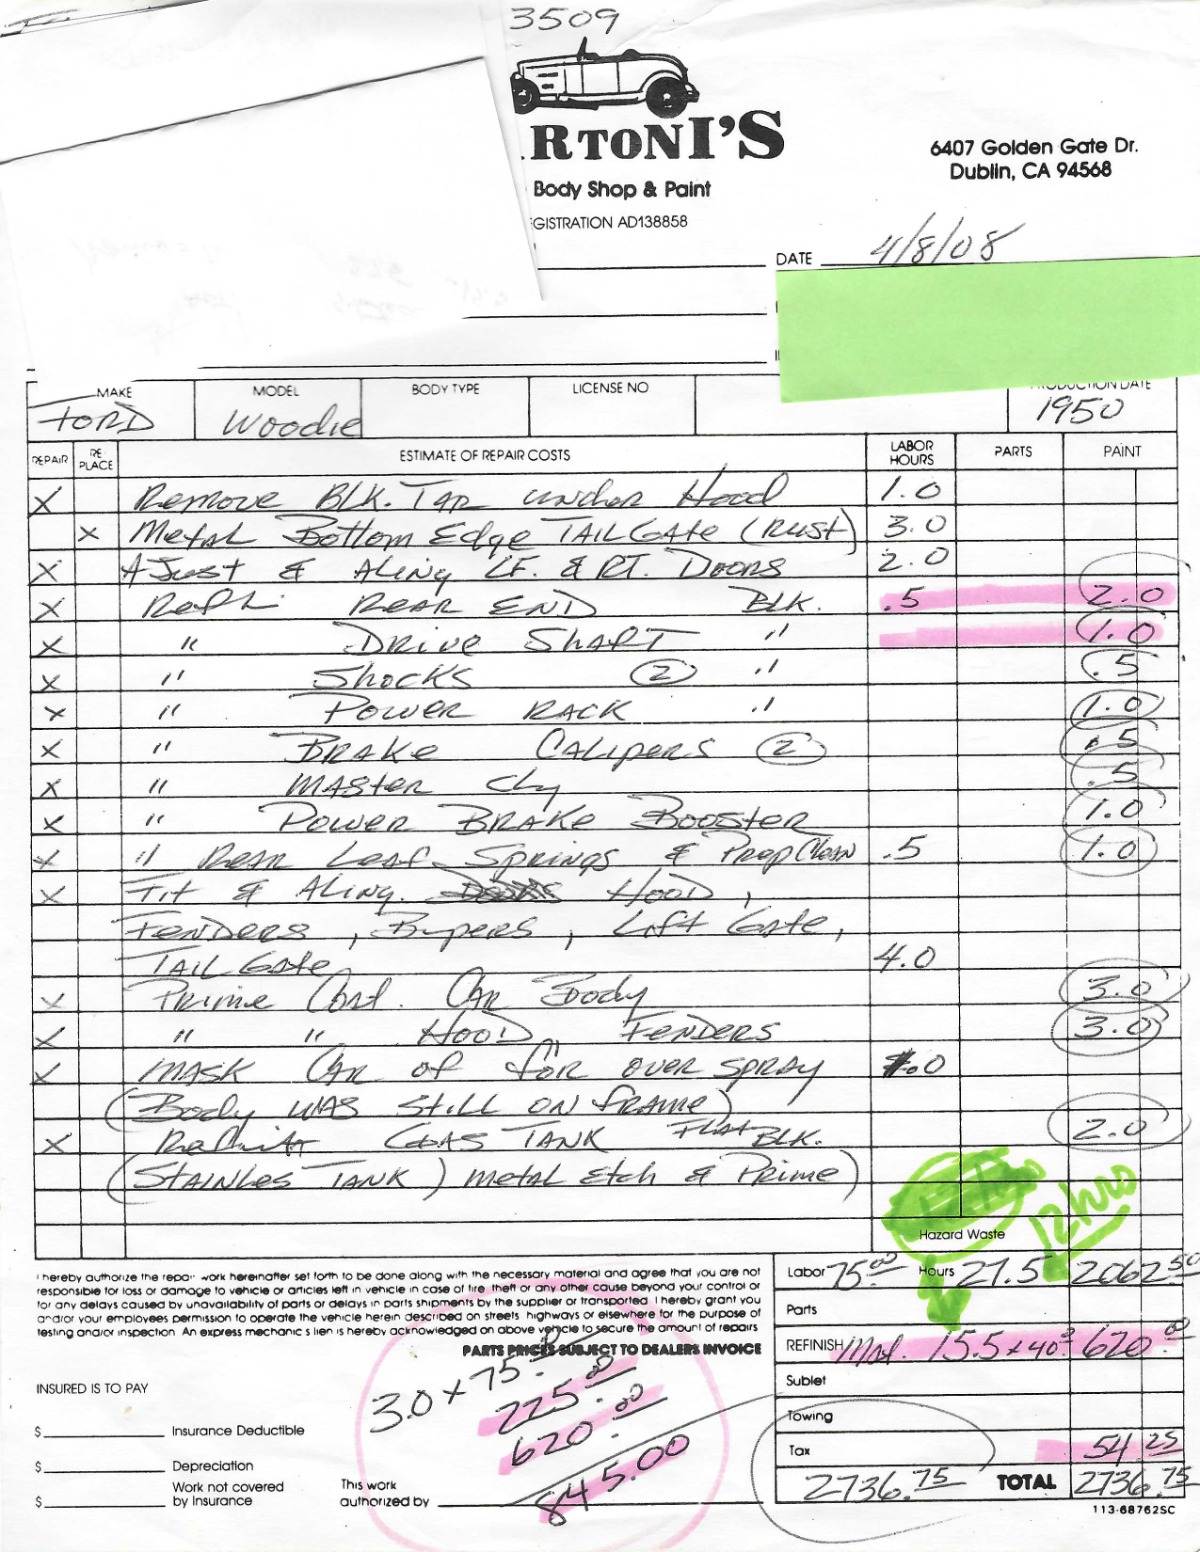 3509
RTONI'S
Body Shop & Paint
GISTRATION AD138858
6407 Golden Gate Dr.
Dublin, CA 94568
DATE 4/8/08
MAKE MODEL BODY TYPE LICENSE NO PRODUCTION DATE
FORD Woodie 1950
REPAIR RE PLACE ESTIMATE OF REPAIR COSTS LABOR HOURS PARTS PAINT
X Remove BLK. TAR under Hood 1.0
X Metal Bottom Edge TAILGate (Rust) 3.0
X AJust & Aling LF. & RT. Doors 2.0
X Refh REAR END BLK. .5 2.0
X " Drive Shaft " 1.0
X " Shocks 2 " .5
X " Power Rack " 1.0
X " Brake Calipers 2 .5
X " Master Cly .5
X " Power Brake Booster 1.0
X " Rear Leaf Springs & Prep Clean .5 1.0
X Fit & Aling. HOOD,
Fenders, Bupers, Lift Gate,
TAIL Gate 4.0
X Prime Coat. Car Body 3.0
X " " HOOD, Fenders 3.0
X MASK CAR of for over spray .0
(Body WAS STILL ON frame)
X GAS TANK Flat BLK. 2.0
(STAINLES TANK) metal Etch & Prime)
12 hrs
Hazard Waste
I hereby authorize the repair work hereinafter set forth to be done along with the necessary material and agree that you are not
responsible for loss or damage to vehicle or articles left in vehicle in case of fire, theft or any other cause beyond your control or
for any delays caused by unavailability of parts or delays in parts shipments by the supplier or transported. I hereby grant you
and/or your employees permission to operate the vehicle herein described on streets, highways or elsewhere for the purpose of
testing and/or inspection. An express mechanic's lien is hereby acknowledged on above vehicle to secure the amount of repairs
PARTS PRICES SUBJECT TO DEALERS INVOICE
Labor 75 00 Hours 27.5 2062 50
Parts
REFINISH Mat. 15.5 x 40 620. 00
Sublet
Towing
Tax 54 25
2736.75 TOTAL 2736.75
113-68762SC
3.0 x 75.
225. 00
620. 00
845.00
INSURED IS TO PAY
$ Insurance Deductible
$ Depreciation
$ Work not covered by Insurance
This work authorized by